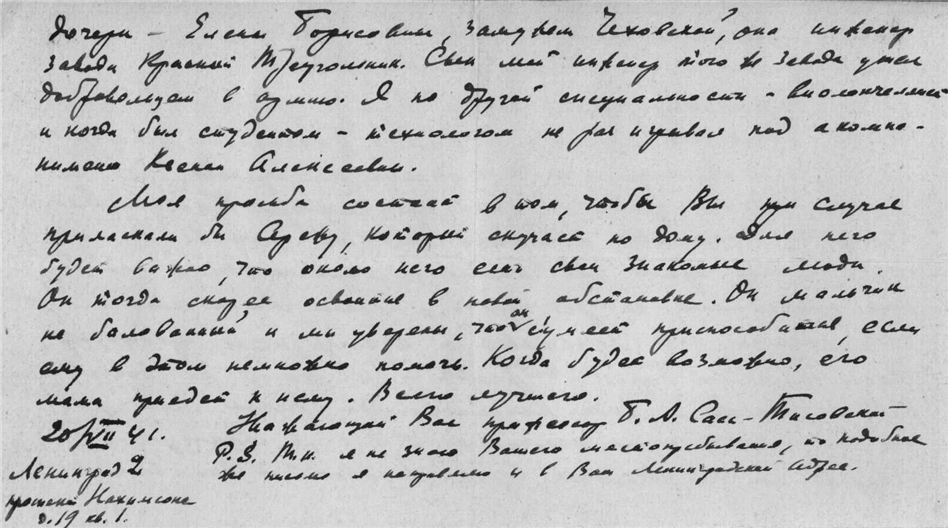 дочери — Елены Борисовны, замужем Чеховской, она инженер
завода Красный Треугольник. Сын мой инженер того же завода ушел
добровольцем в армию. Я по другой специальности — виолончелист
и когда был студентом — технологом не раз игрывал под акомпа-
нимент Ксении Алексеевны.
Моя просьба состоит в том, чтобы Вы при случае
приласкали бы Сережу, который скучает по дому. Для него
будет важно, что около него есть свои знакомые люди.
Он тогда скорее освоится в новой обстановке. Он мальчик
не балованный, и мы уверены, что он сумеет приспособиться, если
ему в этом немножко помочь. Когда будет возможно, его
мама приедет к нему. Всего лучшего.
20/VII 41 г. Уважающий Вас профессор Б. А. Сасс-Тисовский
P.S. Т.к. я не знаю Вашего местопребывания, то подобное
же письмо я направляю и в Ваш Ленинградский адрес.
Ленинград 2
проспект Нахимсона
д. 19 кв. 1.